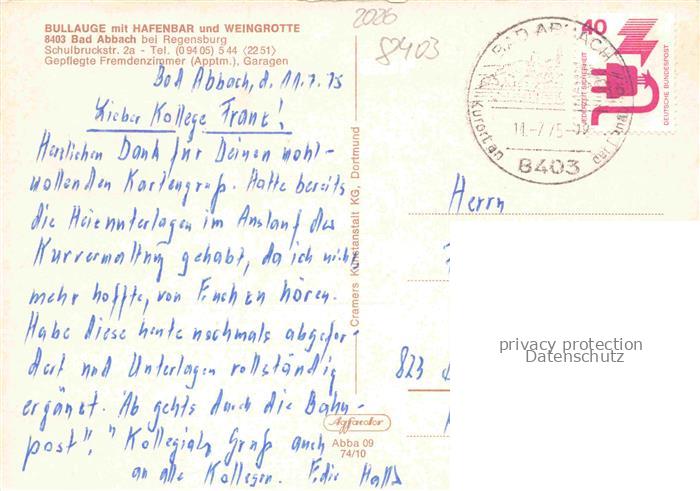 BULLAUGE mit HAFENBAR und WEINGROTTE
8403 Bad Abbach bei Regensburg
Schulbruckstr. 2a - Tel. (09405) 544 <2251>
Gepflegte Fremdenzimmer (Apptm.), Garagen
2026
8403
Bad Abbach, d. 11.7.75
Lieber Kollege Franz!
Herzlichen Dank für Deinen wohl-
wollenden Kartengruß. Hatte bereits
die Heimunterlagen im Auslauf des
Kurverwaltung gehabt, da ich nicht
mehr hoffte, von Euch zu hören.
Habe diese heute nochmals abgefor-
dert und Unterlagen vollständig
ergänzt. Ab gehts durch die Bahn-
post", "Kollegialg Gruß auch
an alle Kollegen.
Cramers Kunstanstalt KG, Dortmund
Agfacolor
Abba 09
74/10
BAD ABBACH
Kurort an der Donau
11.-7.75
8403
40
JEDERZEIT SICHERHEIT
DEUTSCHE BUNDESPOST
Herrn
823
privacy protection
Datenschutz